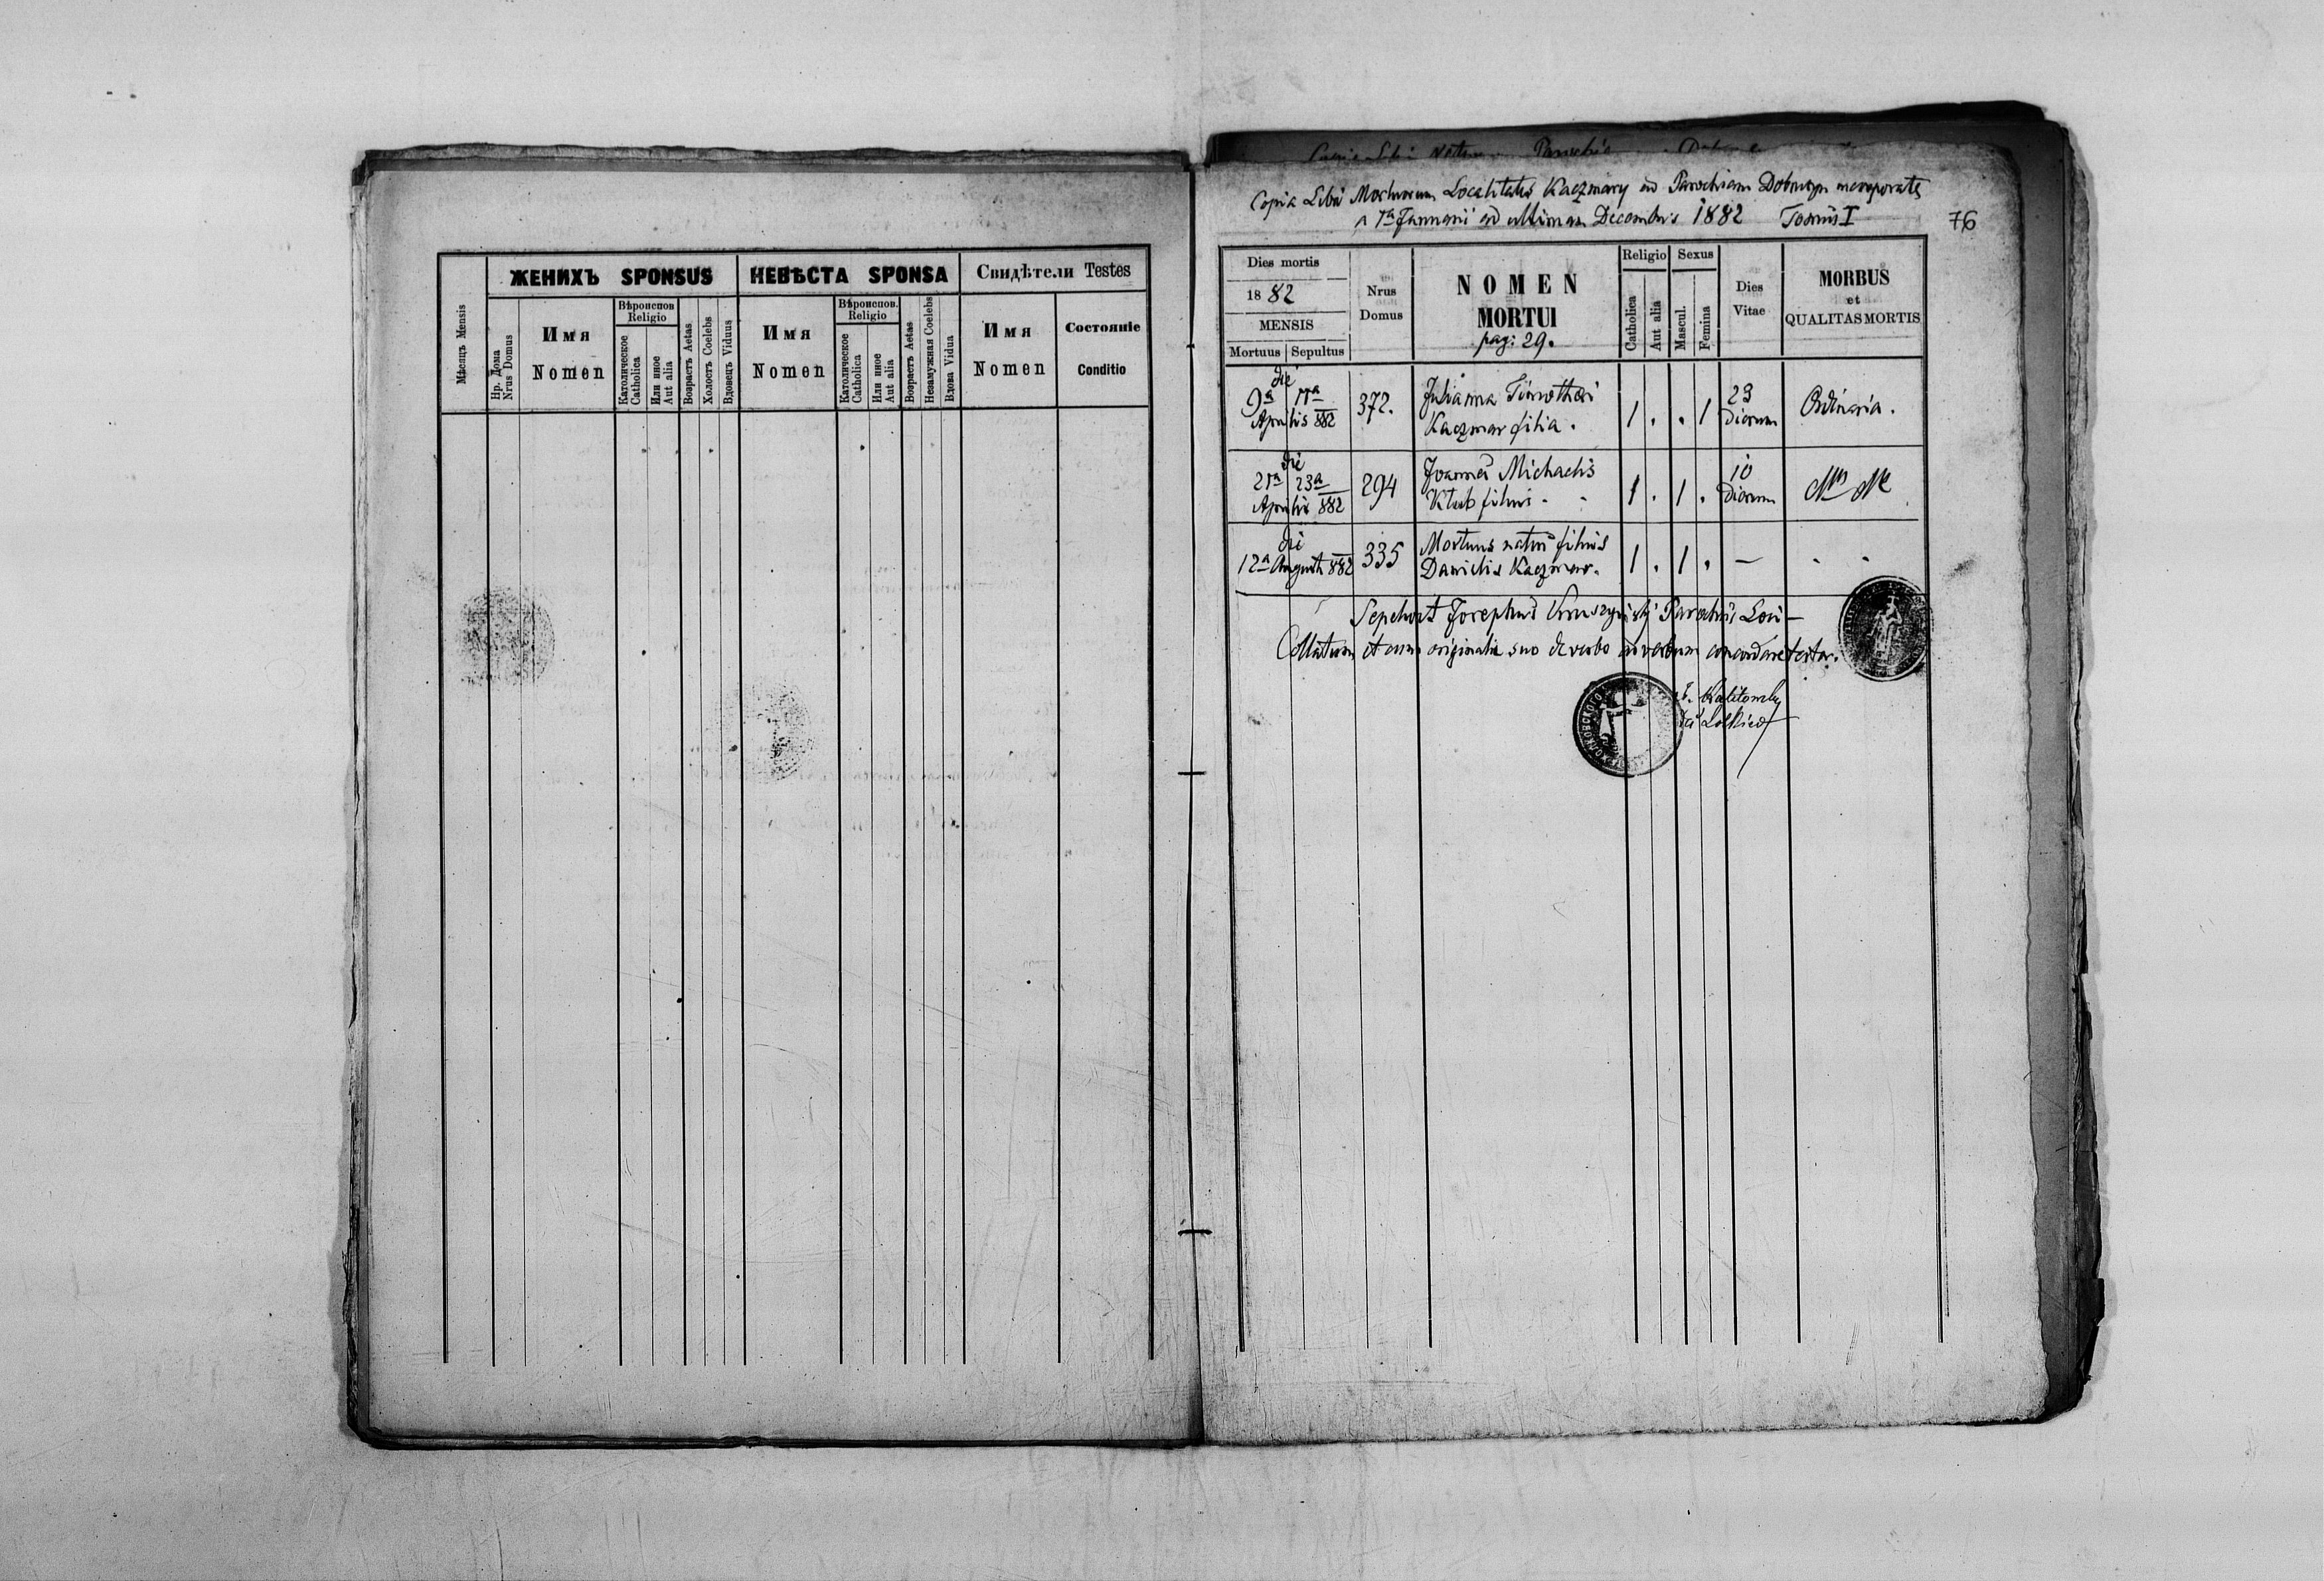 ЖЕНИХЪ SPONSUS
НЕВѢСТА SPONSA
Свидѣтели Testes
Мѣсяцъ Mensis
Нр. Дома
Nrus Domus
Имя
Nomen
Вѣроиспов
Religio
Католическое
Catholica
Или иное
Aut alia
Возрастъ Aetas
Холостъ Coelebs
Вдовецъ Viduus
Имя
Nomen
Вѣроиспов.
Religio
Католическое
Catholica
Или иное
Aut alia
Возрастъ Aetas
Незамужная Coelebs
Вдова Vidua
Имя
Nomen
Состояніе
Conditio
Copia Libri Mortuorum Localitatis Kaczmary ad Parochiam
a 1ª Januarii ad ultimam Decembris 1882 Tomus I
76
Dies mortis
1882
MENSIS
Mortuus Sepultus
Nrus
Domus
NOMEN
MORTUI
pag: 29.
Religio
Catholica
Aut alia
Sexus
Mascul.
Femina
Dies
Vitae
MORBUS
et
QUALITAS MORTIS
die
9ª 11ª
Aprilis 882
372.
Julianna Timothei
Kaczmar filia.
1 . . 1
23
dierum
Ordinaria.
die
21ª 23ª
Aprilis 882
294
Joannes Michaelis
Klub filius
1 . 1 .
10
dierum
die
12ª Augusti 882
335
Mortuus natus filius
Danielis Kaczmar.
1 . 1 . —
Sepelivit Josephus Kruszyński Parochus Loci —
Collatum et cum originali suo de verbo ad verbum concordare testor.